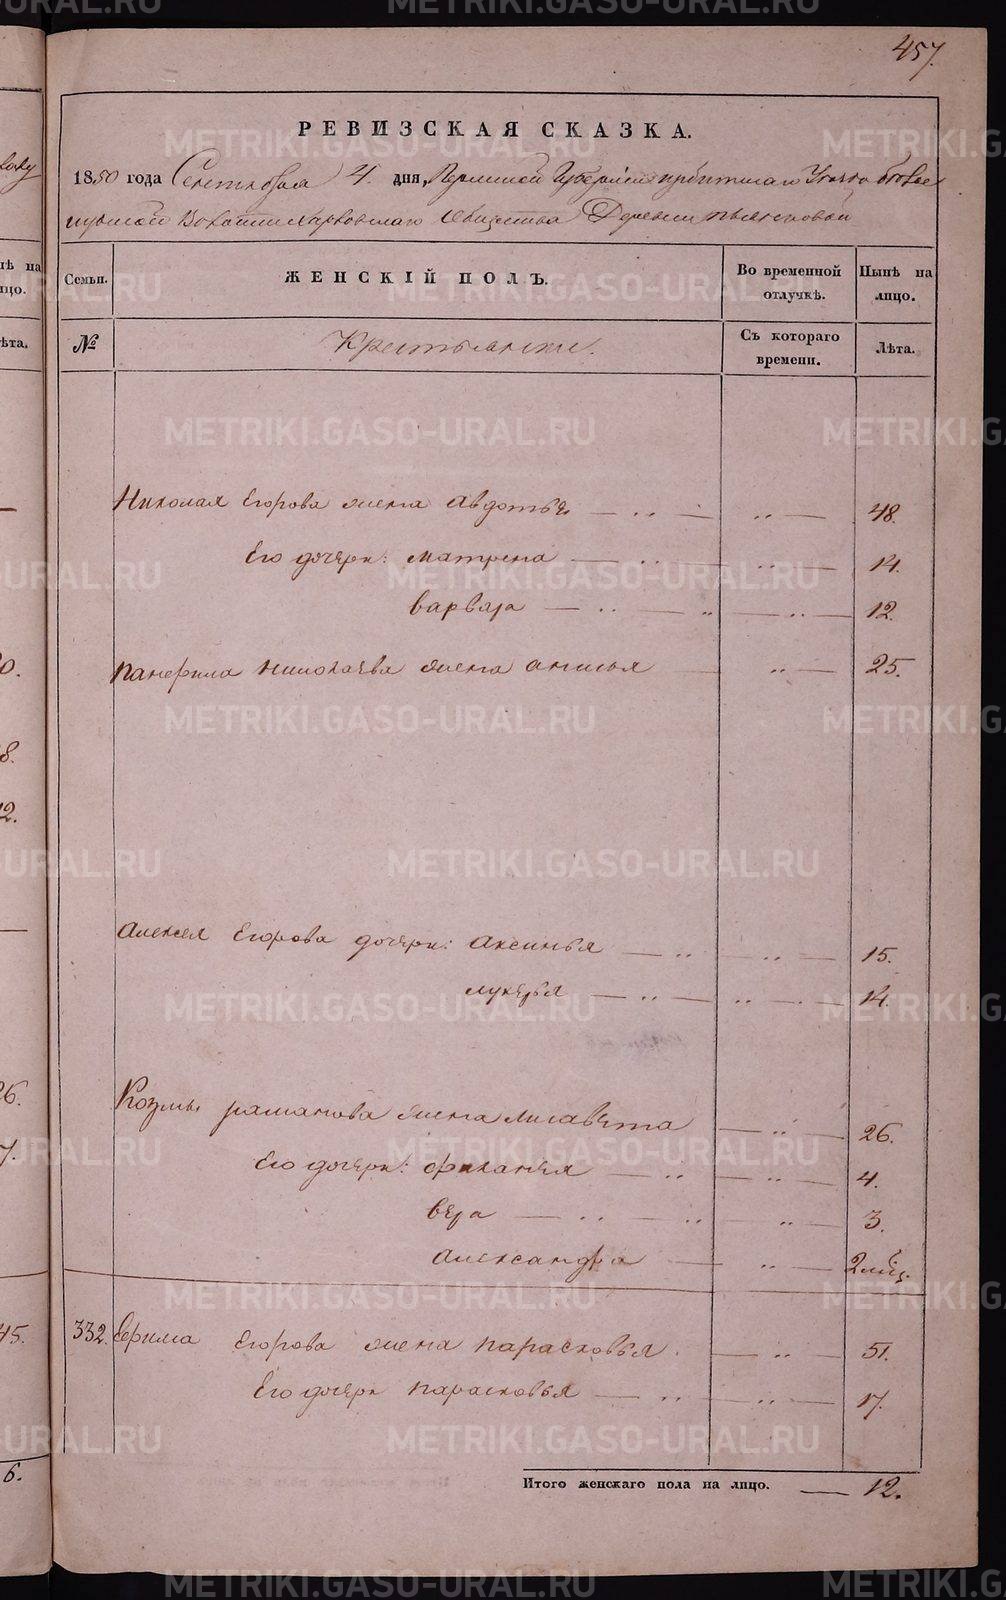 457.
РЕВИЗСКАЯ СКАЗКА.
1850 года Сентября 4 дня, Пермской Губернии
Волости Харковскаго Общества Деревни
Семьи. ЖЕНСКІЙ ПОЛЪ. Во временной отлучкѣ. Нынѣ на лицо.
№ Крестьянские. Съ котораго времени. Лѣта.
Николая Егорова жена Авдотья 48.
Его дочери: Матрена 14.
Варвара 12.
Панфила Николаева жена Анисья 25.
Алексея Егорова дочери: Аксинья 15.
Лукерья 14.
Козмы Раманова жена Лисавета 26.
Его дочери: 4.
Вера 3.
Александра 2 мѣс.
332. Ефима Егорова жена Парасковья 51.
Его дочери Парасковья 17.
Итого женскаго пола на лицо. 12.
METRIKI.GASO-URAL.RU